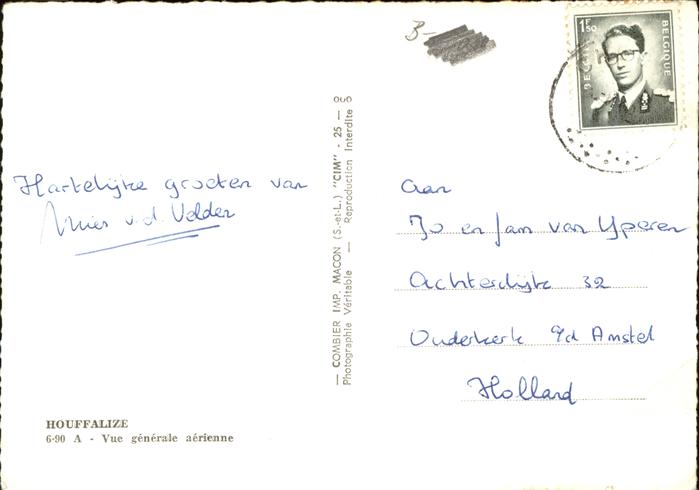 B-
1F50
BELGIE BELGIQUE
Hartelijke groeten van
Mies v.d. Velden
Aan
Jo en Jan van Yperen
Achterdijk 32
Ouderkerk a/d Amstel
Holland
— COMBIER IMP. MACON (S.-et-L.) "CIM" - 25 —
Photographie Véritable — Reproduction Interdite
HOUFFALIZE
6-90 A - Vue générale aérienne